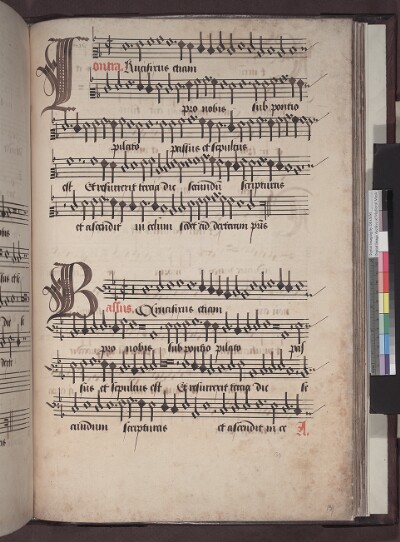 Contra. Crucifixus etiam
pro nobis sub pontio
pilato passus et sepultus
est Et resurrexit tercia die secundum scripturas
et ascendit in celum sedet ad dexteram pris
Bassus. Crucifixus etiam
pro nobis sub pontio pilato pas
sus et sepultus est Et resurrexit tercia die se
cundum scripturas et ascendit in ce A.